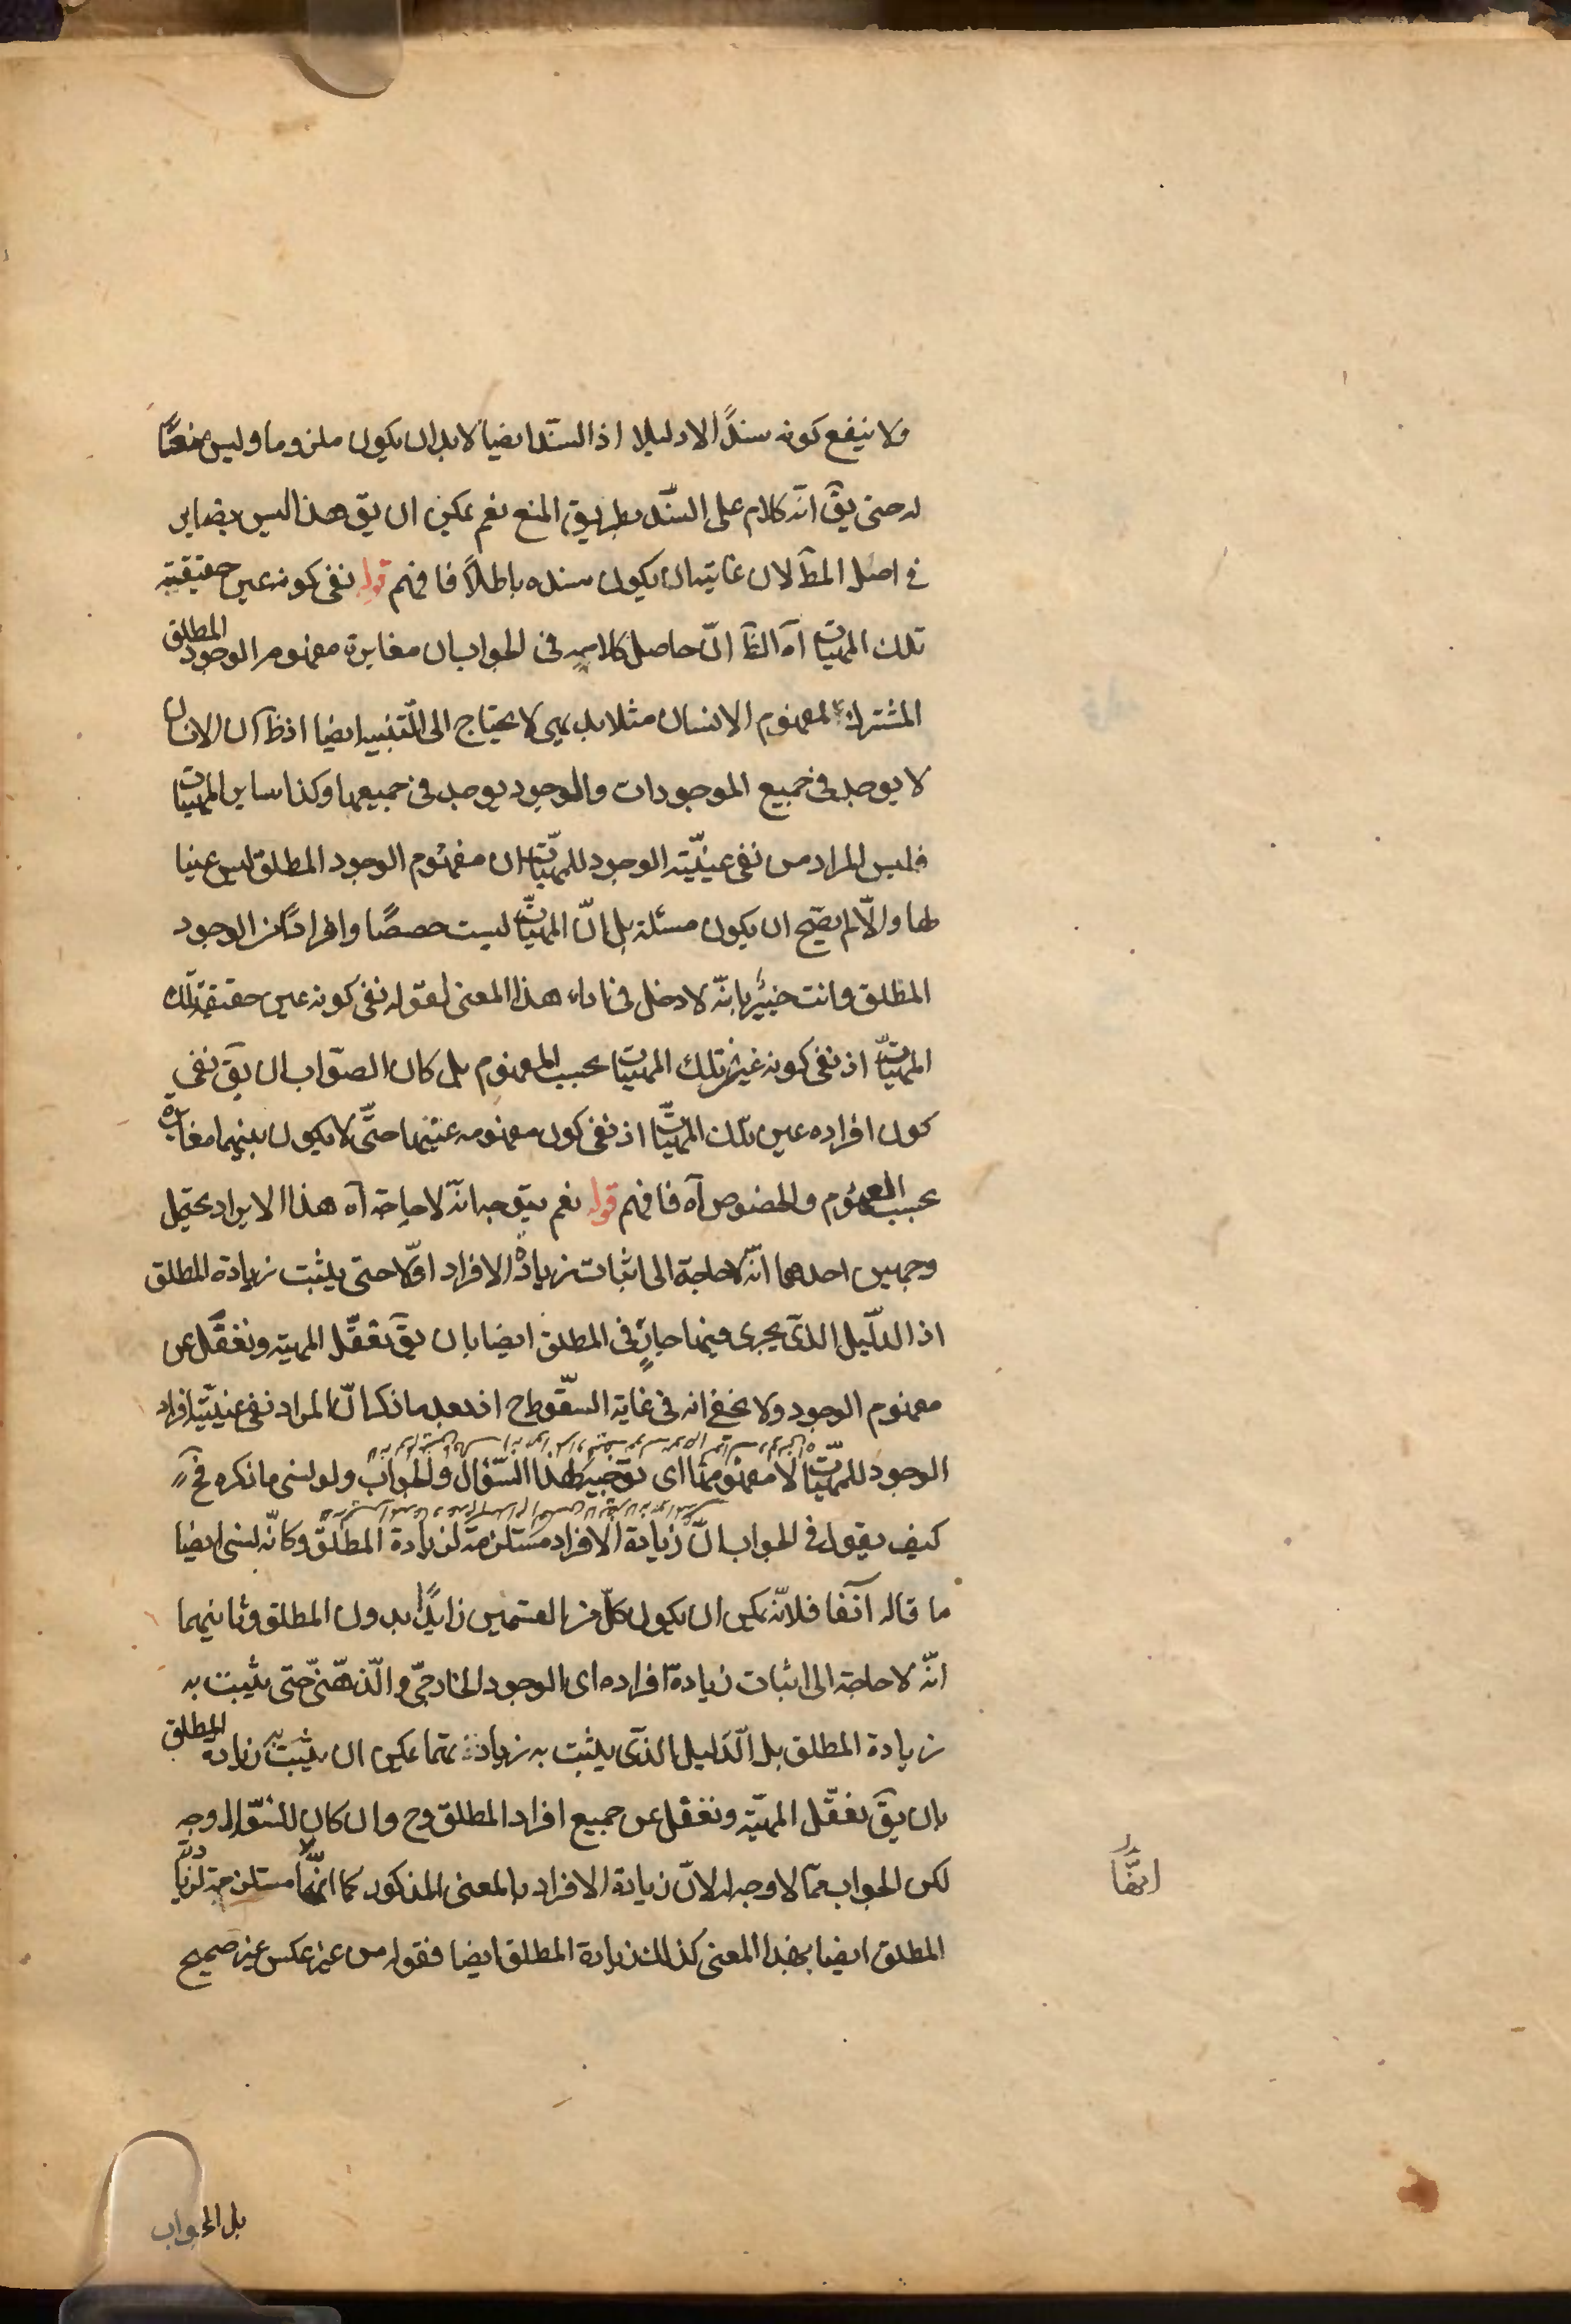 ولا ينفع كونه سندًا لا دليلا اذ السند ايضا لابد ان يكون ملزوما وليس منعًا
له حتى يق انّه كلام على السّند بطريق المنع نعم يمكن ان يق هذا ليس بضاير
في اصل المط لان غايته ان يكون سنده باطلاً فافهم قوله نفى كونه عين حقيقته
تلك المهيّات آه الظ انّ حاصل كلامه في الجواب ان مغايرة مفهوم الوجود المطلق
المشترك لمفهوم الانسان مثلا بديهى لا يحتاج الى التّنبيه ايضا اذ ظ ان الانسان
لا يوجد في جميع الموجودات والوجود يوجد في جميعها وكذا ساير المهيات
فليس المراد من نفى عينيّته الوجود للمهيّات ان مفهوم الوجود المطلق ليس عينا
لها والّا لم يصّح ان يكون مسئلة بل انّ المهيّات ليست حصصًا وافرادًا من الوجود
المطلق وانت خبير بانّه لا دخل في اداء هذا المعنى لقوله نفى كونه عين حقيقة تلك
المهيّات اذ نفى كونه غير تلك المهيّات بحسب المفهوم بل كان الصّواب ان يق نفى
كون افراده عين تلك المهيّات اذ نفى كون مفهومه عينها حتّى لا يكون بينهما مغايرة
بحسب العموم والخصوص آه فافهم قوله نعم يتوجه انّه لا حاجة آه هذا الايراد يحتمل
وجهين احدهما انّه لا حاجة الى اثبات زيادة الافراد اوّلا حتى يثبت زيادة المطلق
اذ الدّليل الذى يجرى فيها جارٍ في المطلق ايضا بان يق نعقّل المهيّه ونغفّل عن
مفهوم الوجود ولا يخفى انه في غاية السّقوط ح اذ بعد ما ذكر انّ المراد نفى عينيّة افراد
الوجود للمهيّات لا مفهومها اى توجيه لهذا السّؤال والجواب ولو نسى ما ذكره فح
كيف يقول في الجواب انّ زيادة الافراد مستلزمة لزيادة المطلق وكانّه نسى ايضا
ما قاله آنفا فلانّه يمكن ان يكون كلّ من القسمين زايدًا بدون المطلق وثانيهما
انّه لا حاجة الى اثبات زيادة افراده اى الوجود الخارجىّ والّذهنىّ حتى يثبت به
زيادة المطلق بل الّدليل الذى يثبت به زيادتهما يمكن ان يثبت به زيادة المطلق
بان يق نعقّل المهيّة ونغفل عن جميع افراد المطلق وح وان كان للسّؤال وجه
لكن الجواب ممّا لا وجه له لانّ زيادة الافراد بالمعنى المذكور كما انّها مستلزمة لزيادة
المطلق ايضا بهذا المعنى كذلك زيادة المطلق ايضا فقوله من غير عكس غير صحيح
بل الجواب